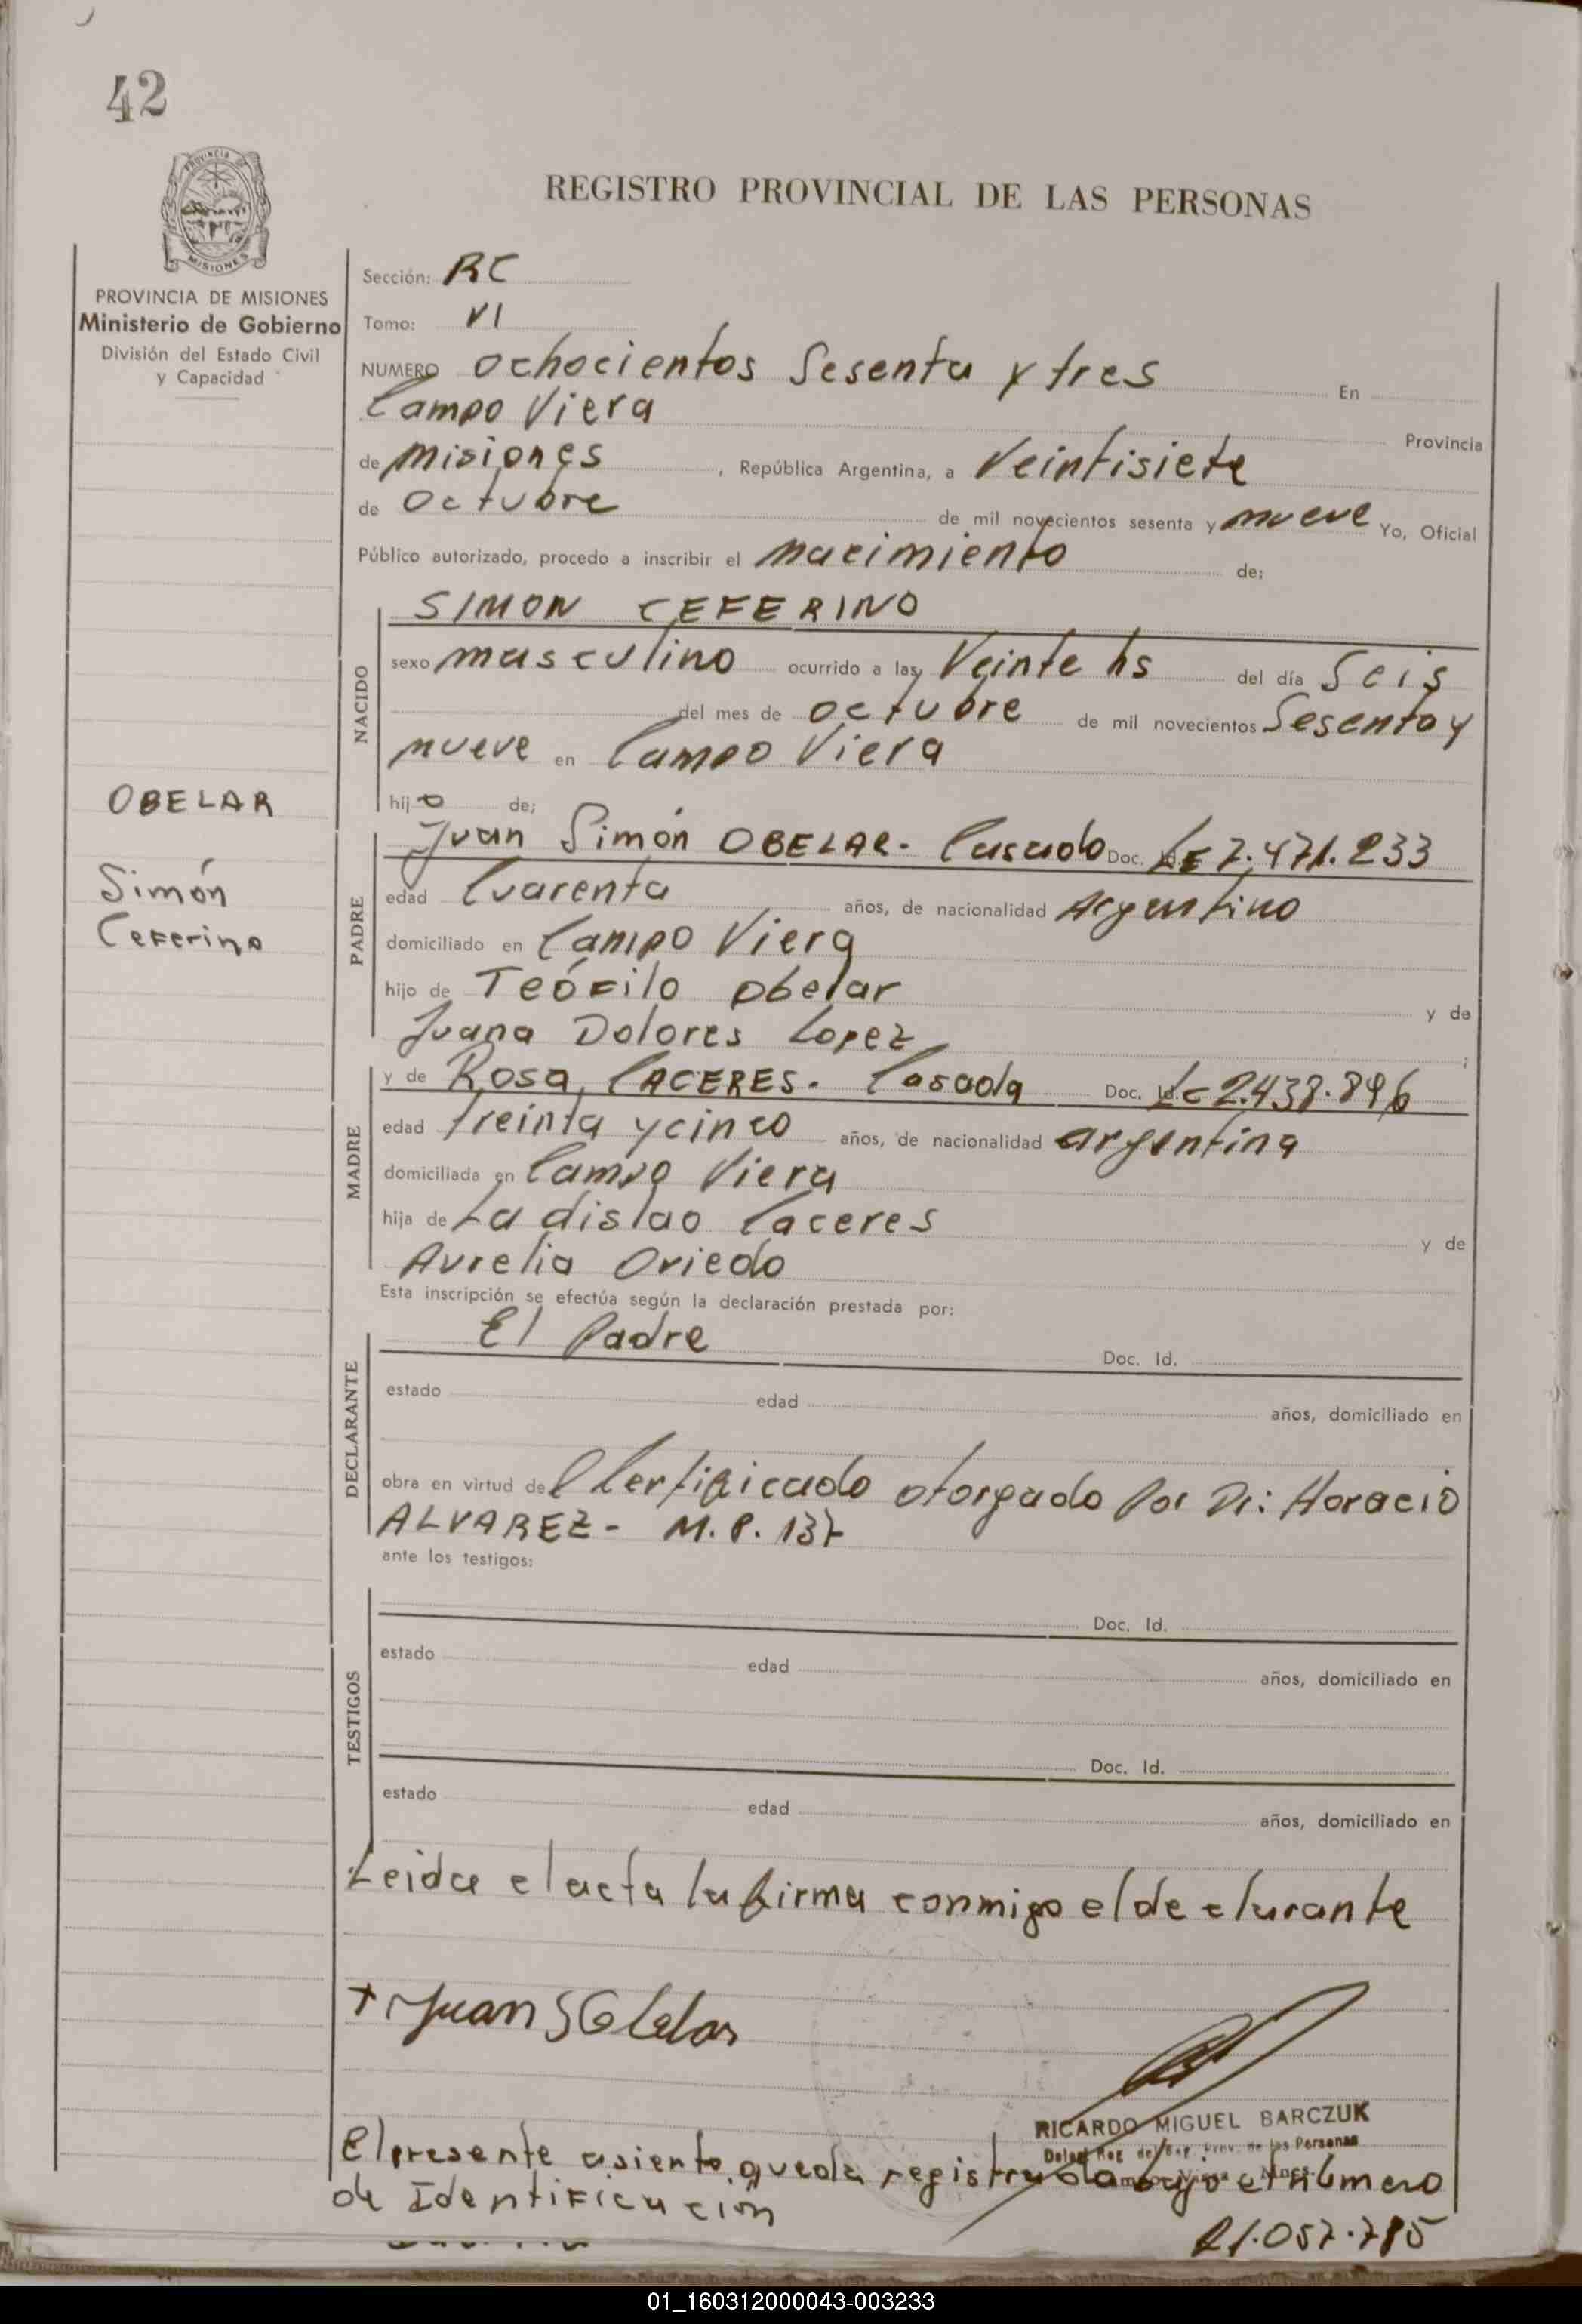 42
PROVINCIA DE MISIONES
PROVINCIA DE MISIONES
Ministerio de Gobierno
División del Estado Civil
y Capacidad
REGISTRO PROVINCIAL DE LAS PERSONAS
Sección: RC
Tomo: VI
NUMERO Ochocientos Sesenta y tres En
Campo Viera Provincia
de Misiones, República Argentina, a Veintisiete
de Octubre de mil novecientos sesenta y nueve Yo, Oficial
Público autorizado, procedo a inscribir el nacimiento de:
NACIDO
SIMON CEFERINO
sexo masculino ocurrido a las Veinte hs del día Seis
del mes de octubre de mil novecientos Sesenta y
nueve en Campo Viera
hijo de;
OBELAR
Simón
Ceferino
PADRE
Juan Simón OBELAR. Casado Doc. Id. LE 7.471.233
edad Cuarenta años, de nacionalidad Argentino
domiciliado en Campo Viera
hijo de Teófilo Obelar y de
Juana Dolores Lopez ;
MADRE
y de Rosa CACERES. Casada Doc. Id. LC 2.438.896
edad treinta y cinco años, de nacionalidad argentina
domiciliada en Campo Viera
hija de Ladislao Caceres y de
Aurelia Oviedo
Esta inscripción se efectúa según la declaración prestada por:
DECLARANTE
El Padre Doc. Id.
estado edad años, domiciliado en
obra en virtud del Certificado otorgado Por Dr: Horacio
ALVAREZ - M.P. 137
ante los testigos:
TESTIGOS
Doc. Id.
estado edad años, domiciliado en
Doc. Id.
estado edad años, domiciliado en
Leida el acta la firma conmigo el declarante
+ Juan S Obelar
RICARDO MIGUEL BARCZUK
Deleg. Reg. del Reg. Prov. de las Personas
El presente asiento queda registrado bajo el número
de Identificación
21.057.785
01_160312000043-003233